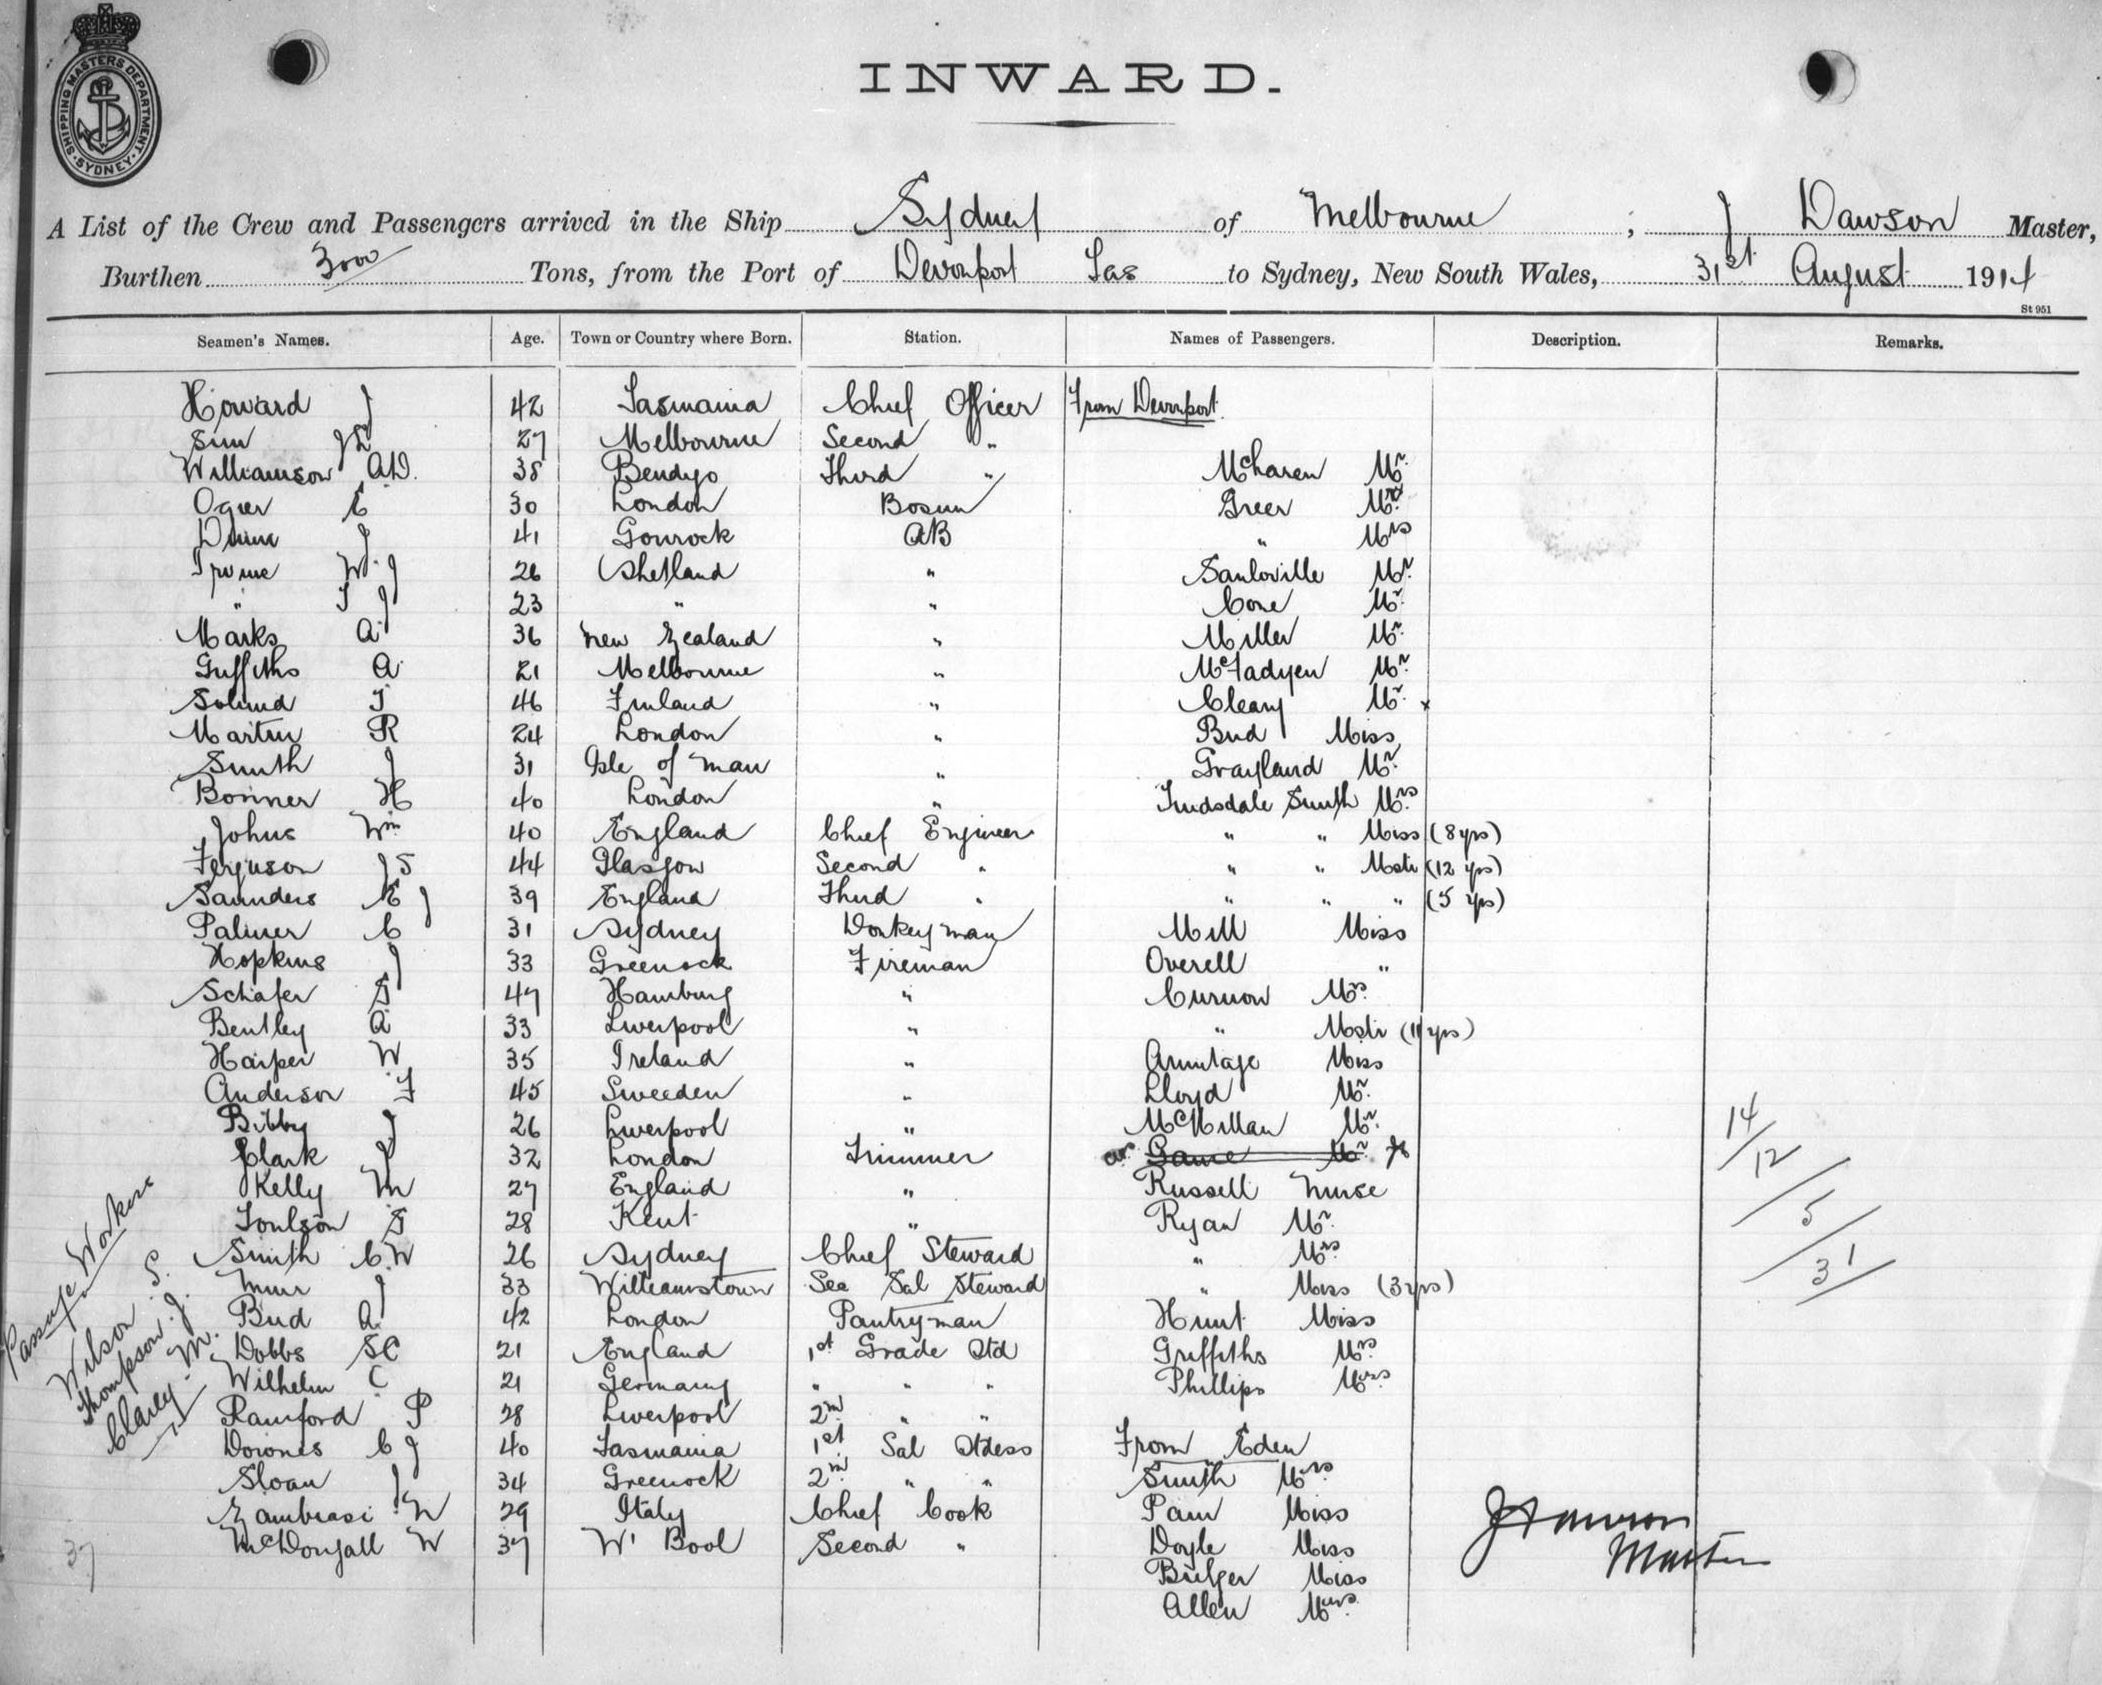 SHIPPING MASTERS DEPARTMENT. SYDNEY
INWARD.
A List of the Crew and Passengers arrived in the Ship Sydney of Melbourne ; J Dawson Master,
Burthen 3000 Tons, from the Port of Devonport Tas to Sydney, New South Wales, 31st August 1914
St 951
Seamen's Names. Age. Town or Country where Born. Station. Names of Passengers. Description. Remarks.
Howard J 42 Tasmania Chief Officer From Devonport
Sim 27 Melbourne Second "
Williamson A.D. 38 Bendigo Third " McLaren Mr.
Ogier E 30 London Bosun Greer Mr.
Dunn J 41 Gourock AB " Mrs
Irvine W. J 26 Shetland " Mr.
" T J 23 " " Cone Mr.
Marks A 36 New Zealand " Miller Mr.
Griffiths A 21 Melbourne " McFadyen Mr.
T 46 Finland " Cleary Mr. x
Martin R 24 London " Bud Miss
Smith J 31 Isle of Man " Grayland Mr.
Bonner H 40 London " Smith Mrs
Johns Wm 40 England Chief Engineer " " Miss (8 yrs)
Ferguson J S 44 Glasgow Second " " " Mstr (12 yrs)
Saunders E J 39 England Third " " " " (5 yrs)
Palmer C 31 Sydney Donkeyman Mill Miss
Hopkins J 33 Greenock Fireman Overell "
Schafer G 47 Hamburg " Curnow Mrs
Bentley A 33 Liverpool " " Mstr (11 yrs)
Harper W 35 Ireland " Armitage Miss
Anderson F 45 Sweeden " Lloyd Mr.
Bibby J 26 Liverpool " McMillan Mr.
Clark J 32 London Trimmer Game Mr.
Kelly M 27 England " Russell Nurse
Toulson G 28 Kent " Ryan Mr.
Smith C.W 26 Sydney Chief Steward " Mrs
Muir J 33 Williamstown Sec Sal Steward " Miss (3 yrs)
Bud A 42 London Pantryman Hunt Miss
Dobbs S C 21 England 1st Grade Std Griffiths Mrs
Wilhelm C 21 Germany " " " Phillips Mrs
Rainford P 28 Liverpool 2nd " "
Downes C J 40 Tasmania 1st Sal Stdess From Eden
Sloan J 34 Greenock 2nd " " Smith Mrs
Zambrasi W 29 Italy Chief Cook Pain Miss
McDougall W 37 W' Bool Second " Doyle Miss
Bulger Miss
Allen Mrs.
Passage Workers
Wilson S.
Thompson. J.
Clarey - M.
37
14/
12/
5/
31/
J Dawson
Master